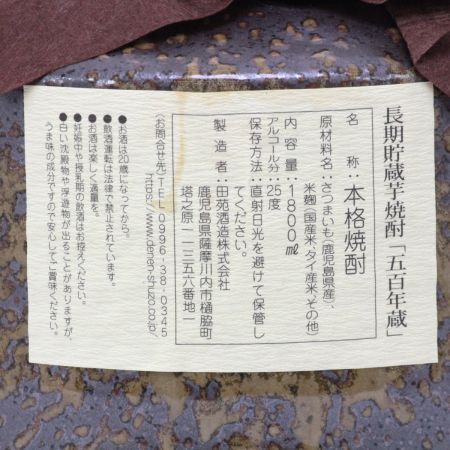 長期貯蔵芋焼酎「五百年蔵」
名称：本格焼酎
原材料名：さつまいも（鹿児島県産）、
米麹（国産米、タイ産米、その他）
内容量：1800㎖
アルコール分：25度
保存方法：直射日光を避けて保管し
てください。
製造者：田苑酒造株式会社
鹿児島県薩摩川内市樋脇町
塔之原一一三五六番地一
（お問合せ先）TEL 0996-38-0345
https://www.denen-shuzo.co.jp/
●お酒は20歳になってから。
●飲酒運転は法律で禁止されています。
●お酒は楽しく適量を。
●妊娠中や授乳期の飲酒はお控えください。
●白い沈殿物や浮遊物が出ることがありますが、
うま味の成分ですので安心してご賞味ください。